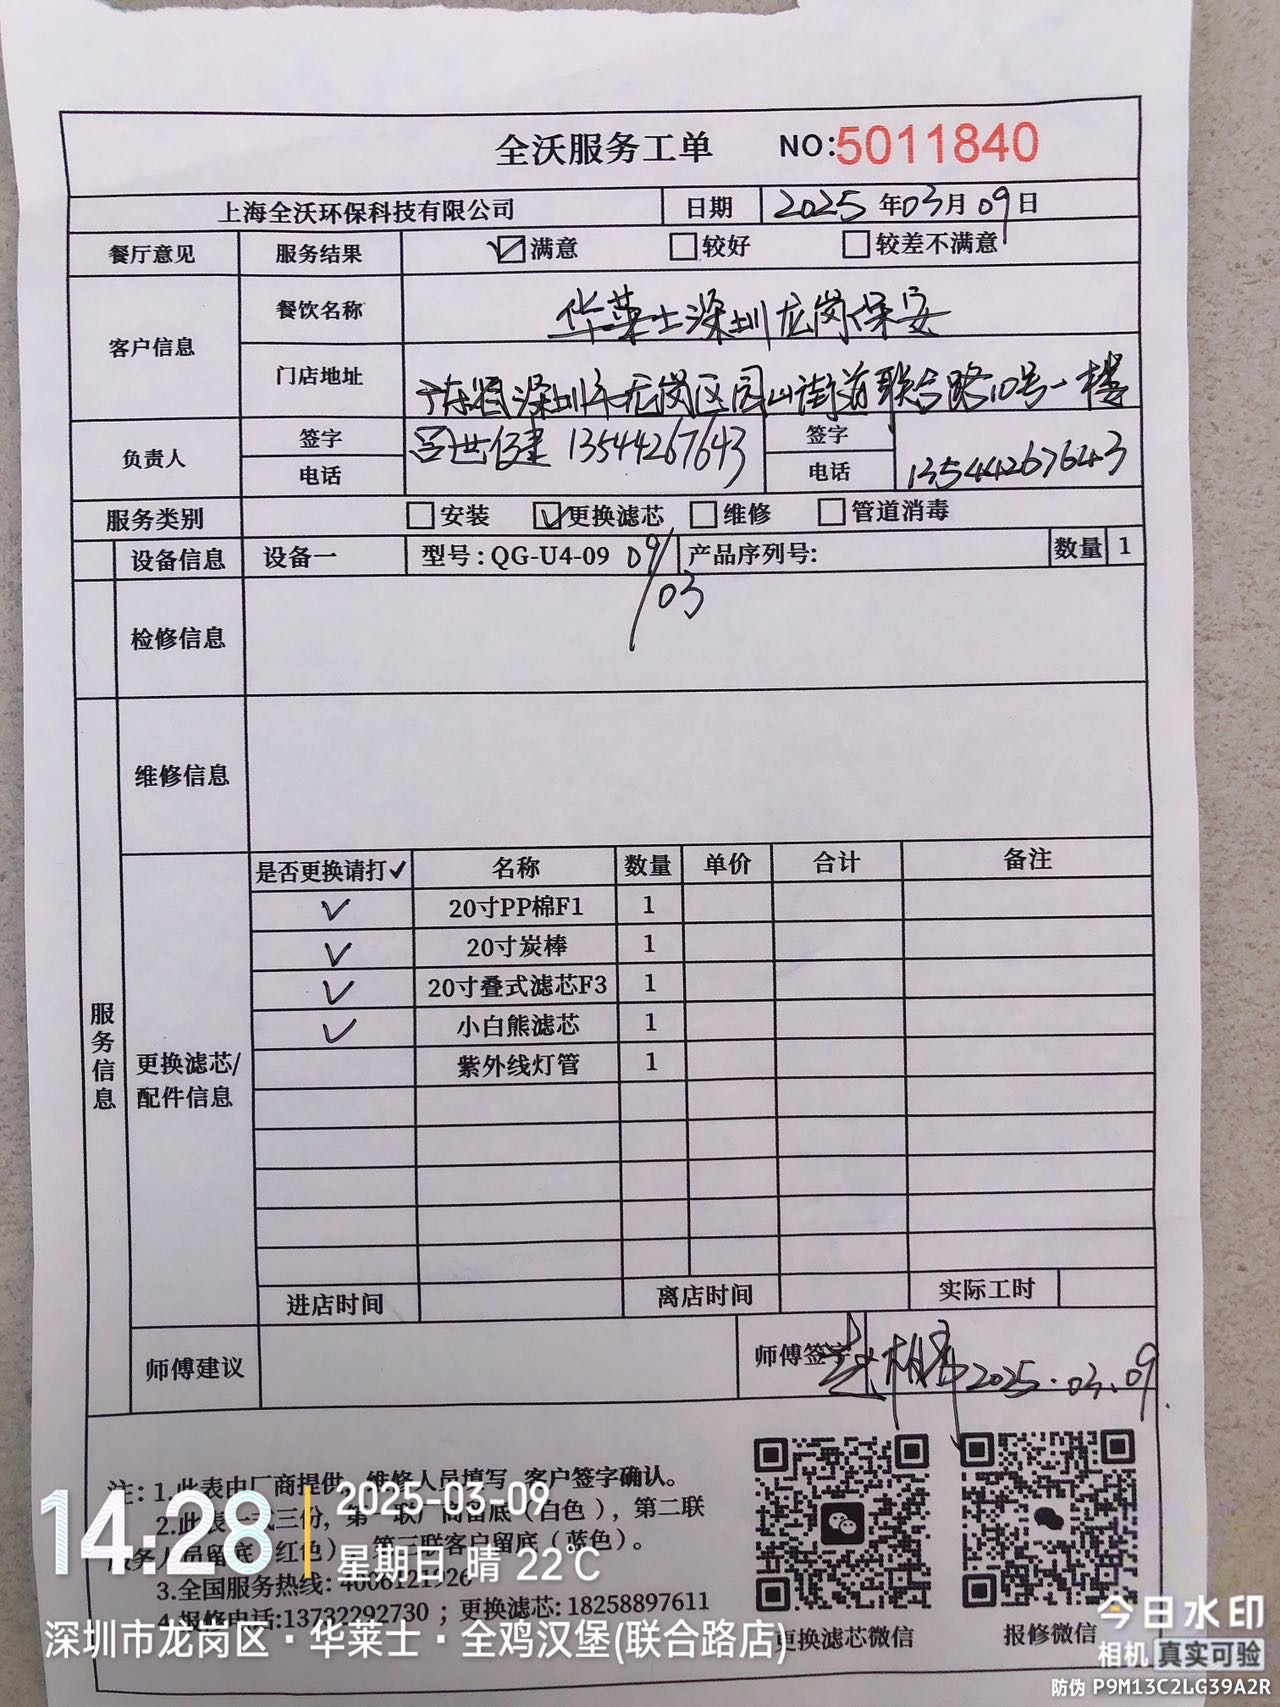 全沃服务工单 NO:5011840
上海全沃环保科技有限公司 日期 2025年03月09日
餐厅意见 服务结果 ☑满意 □较好 □较差不满意
客户信息 餐饮名称 华莱士深圳龙岗保安
门店地址 广东省深圳市龙岗区园山街道联合路10号一楼
负责人 签字 电话 13544267643 签字 电话 13544267643
服务类别 □安装 ☑更换滤芯 □维修 □管道消毒
设备信息 设备一 型号:QG-U4-09 09/03 产品序列号: 数量 1
检修信息
维修信息
服务信息
更换滤芯/配件信息
是否更换请打✓ 名称 数量 单价 合计 备注
✓ 20寸PP棉F1 1
✓ 20寸炭棒 1
✓ 20寸叠式滤芯F3 1
✓ 小白熊滤芯 1
紫外线灯管 1
进店时间 离店时间 实际工时
师傅建议 师傅签字 2025.03.09
注:1.此表由厂商提供,维修人员填写,客户签字确认。
2.此表一式三份,第一联厂商留底(白色),第二联
服务人员留底(红色),第三联客户留底(蓝色)。
3.全国服务热线:4008121926
4.报修电话:13732292730;更换滤芯:18258897611
更换滤芯微信 报修微信
14:28
2025-03-09
星期日 晴 22℃
深圳市龙岗区·华莱士·全鸡汉堡(联合路店)
今日水印
相机 真实可验
防伪 P9M13C2LG39A2R